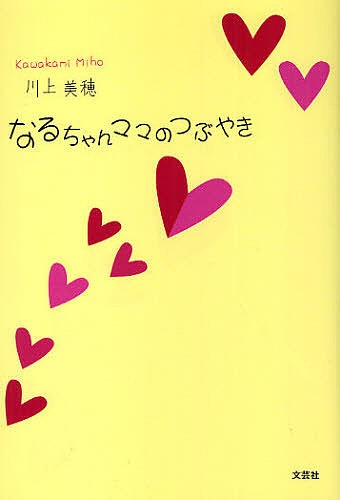 Kawakami Miho
川上 美穂
なるちゃんママのつぶやき
文芸社